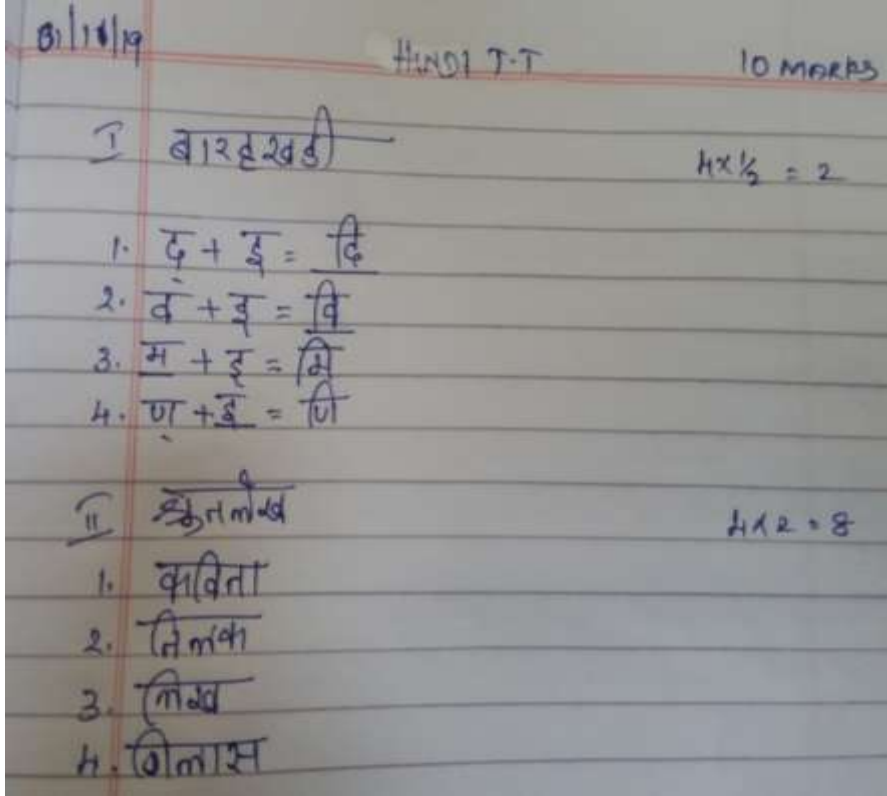 31/11/19
HINDI T.T 10 MARKS
I बारहखडी 4x½ = 2
1. द् + इ = दि
2. व + इ = वि
3. म + इ = मि
4. ण् + इ = णि
II श्रुतलेख 4x2=8
1. कविता
2. तिलक
3. लिख
4. गिलास